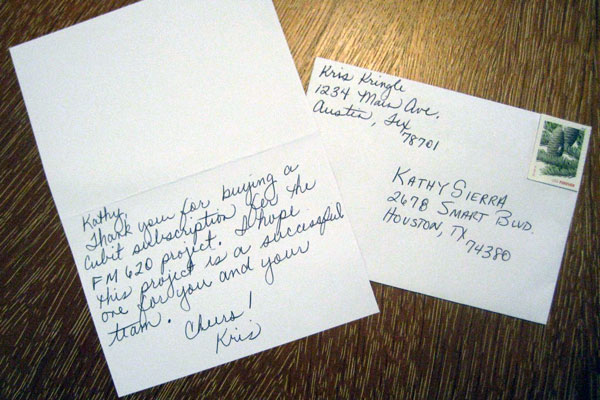 Kathy,
Thank you for buying a
Cubit subscription for the
FM 620 project. I hope
this project is a successful
one for you and your
team.
Cheers!
Kris
Kris Kringle
1234 Main Ave.
Austin, Tex
78701
KATHY SIERRA
2678 SMART BLVD.
HOUSTON, TX
74380